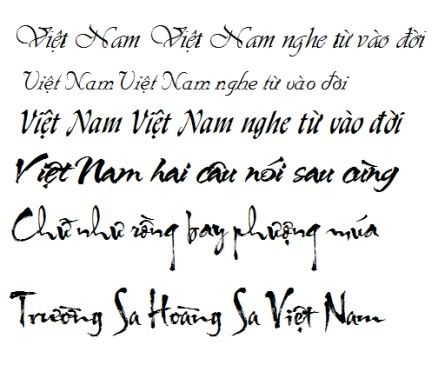 Việt Nam Việt Nam nghe từ vào đời
Việt Nam Việt Nam nghe từ vào đời
Việt Nam Việt Nam nghe từ vào đời
Việt Nam hai câu nói sau cùng
Chữ như rồng bay phượng múa
Trường Sa Hoàng Sa Việt Nam